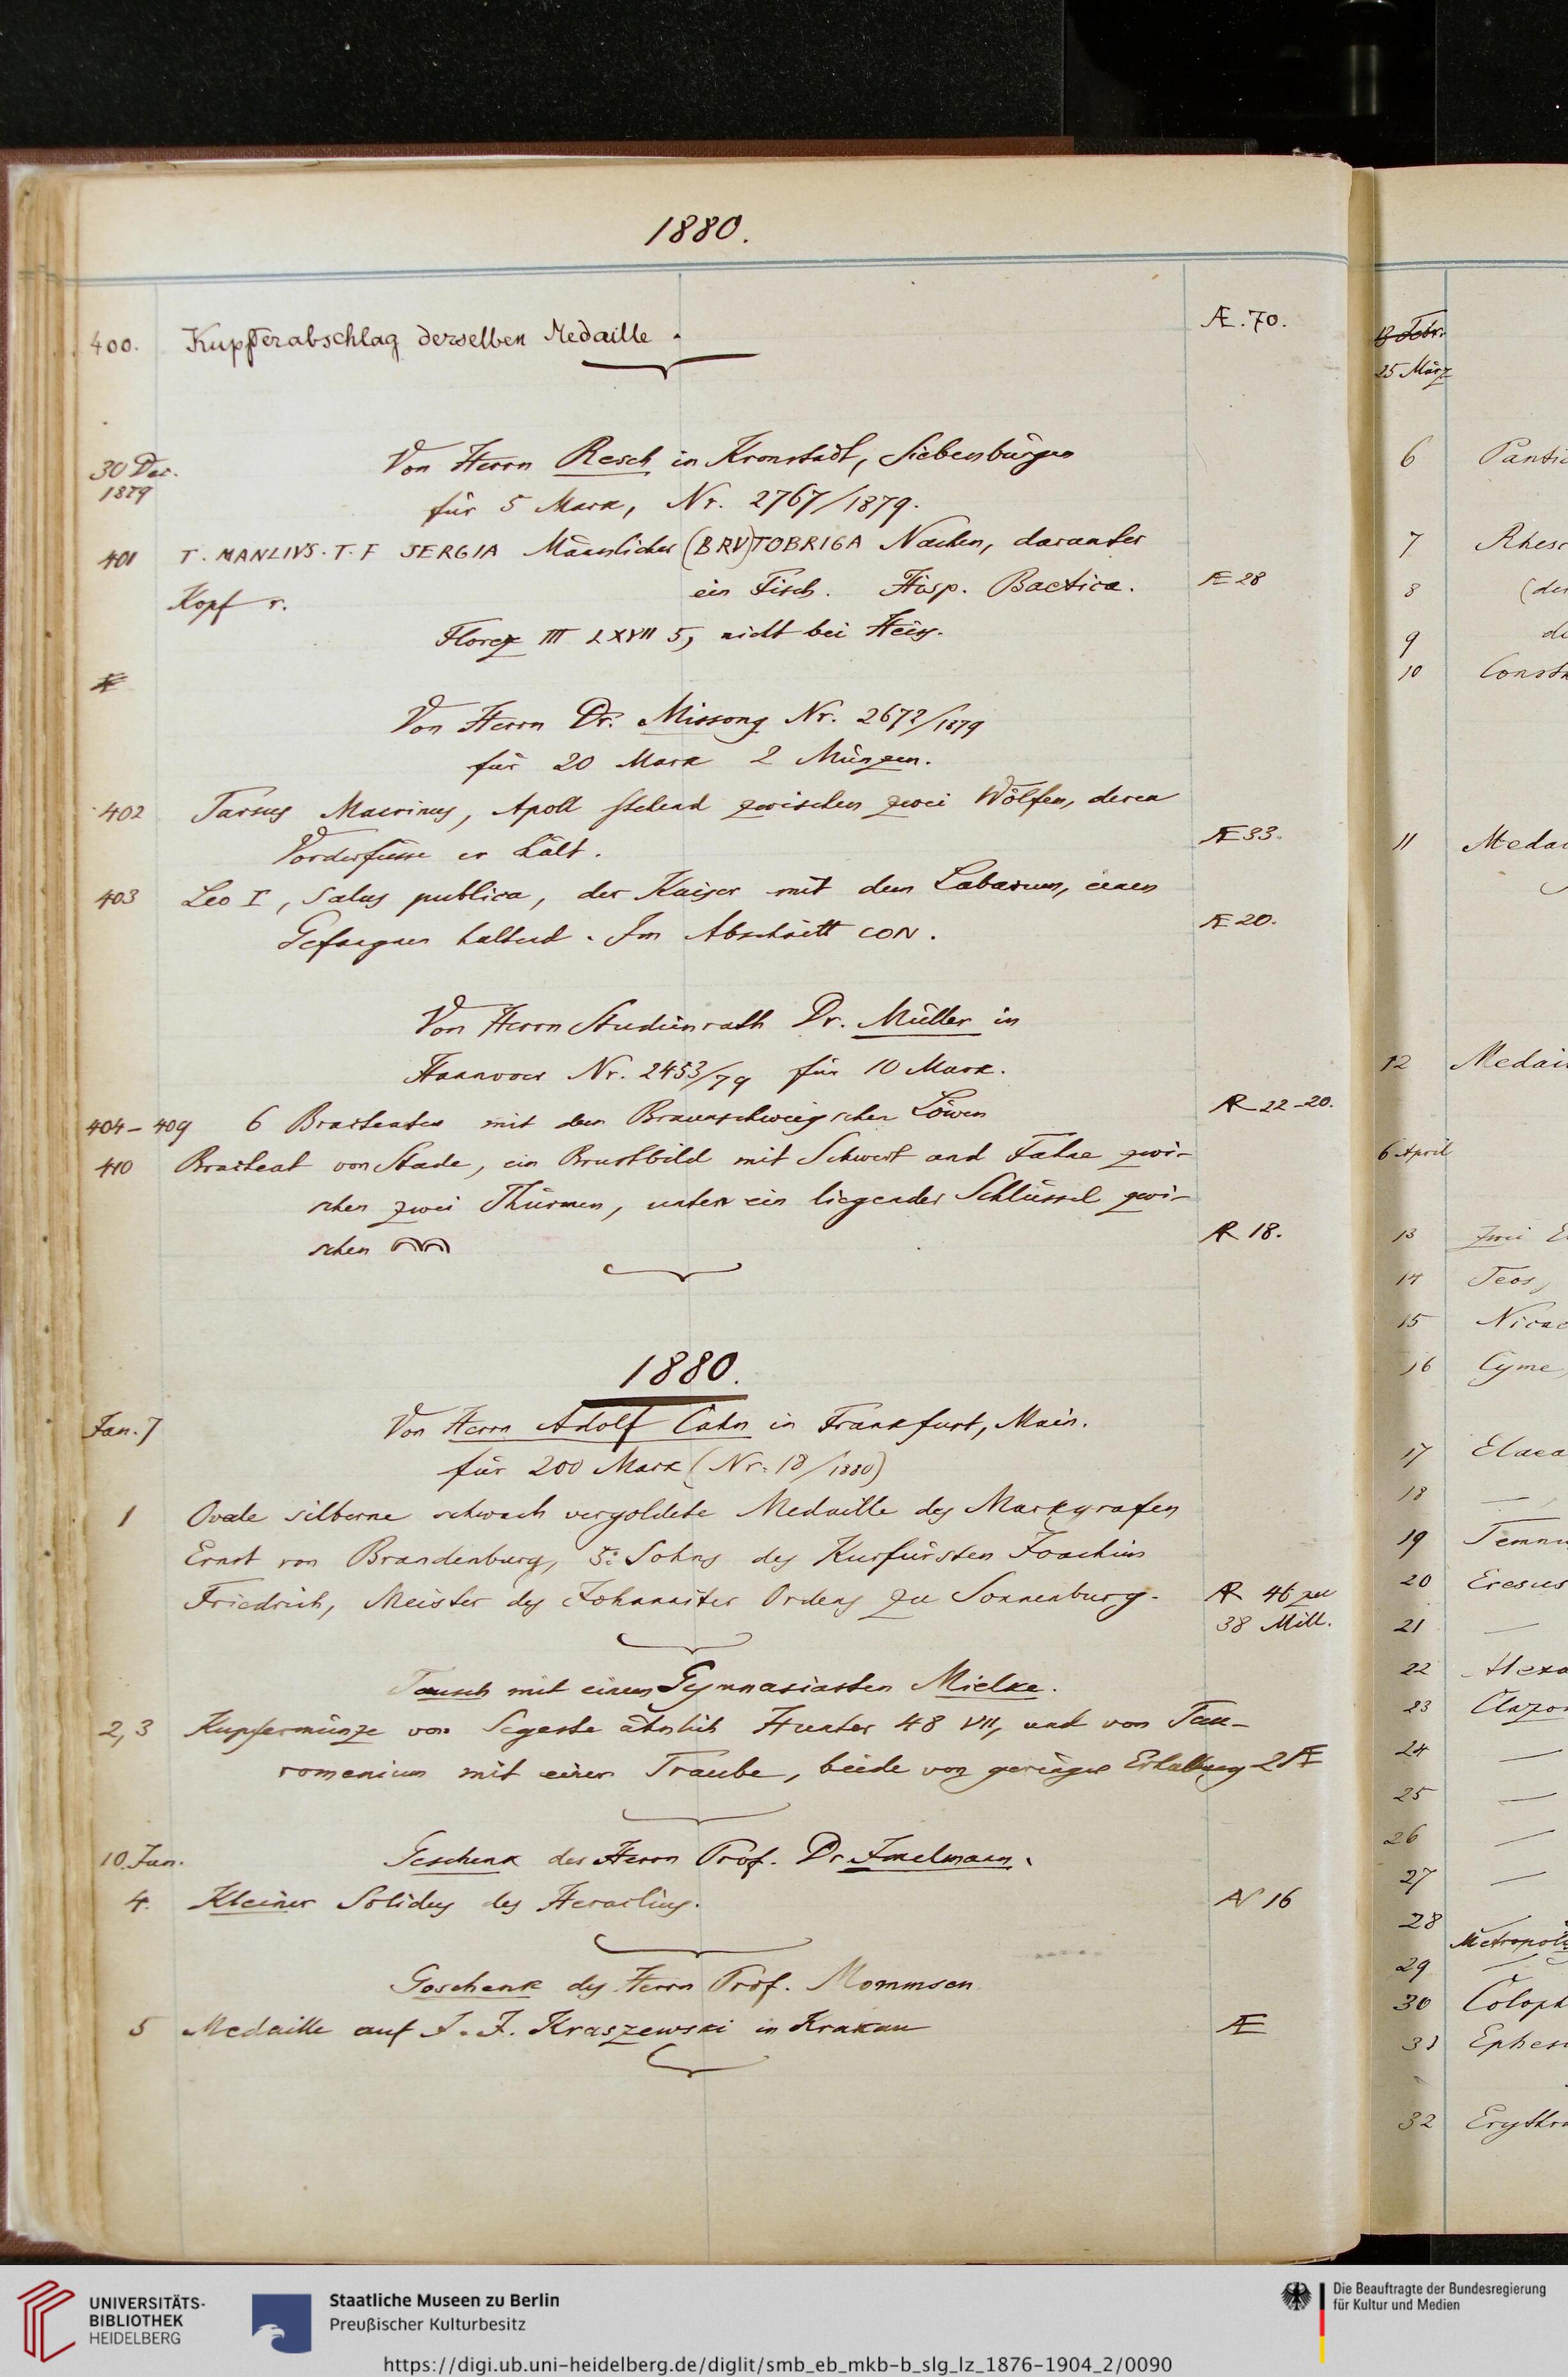 1880.
400. Kupferabschlag derselben Medaille. Æ.70.
30 Dec. 1879
Von Herrn Resch in Kronstadt, Siebenbürgen
für 5 Mark, Nr. 2767/1879.
401 T. MANLIVS. T. F SERGIA Männlicher (BRV)TOBRIGA Nachen, darunter
Kopf r. ein Fisch. Hisp. Baetica. Æ 28
Florez III LXVII 5, nicht bei Heiss.
Von Herrn Dr. Missong Nr. 2672/1879
für 20 Mark 2 Münzen.
402 Tarsus Macrinus, Apoll stehend zwischen zwei Wölfen, deren
Vorderfüsse er hält. Æ 33.
403 Leo I, Salus publica, der Kaiser mit dem Labarum, einen
Gefangnen haltend. Im Abschnitt CON. Æ 20.
Von Herrn Studienrath Dr. Müller in
Hannover Nr. 2453/79 für 10 Mark.
404–409 6 Bracteaten mit dem Braunschweigschen Löwen AR 22–20.
410 Bracteat von Stade, ein Brustbild mit Schwert und Fahne zwi-
schen zwei Thürmen, unten ein liegender Schlüssel zwi-
schen AR 18.
1880.
Jan. 7 Von Herrn Adolf Cahn in Frankfurt, Main.
für 200 Mark (Nr. 18/1880)
1 Ovale silberne schwach vergoldete Medaille des Markgrafen
Ernst von Brandenburg, 5. Sohns des Kurfürsten Joachim
Friedrich, Meister des Johanniter Ordens zu Sonnenburg. AR 46 zu
38 Mill.
Tausch mit einem Gymnasiasten Mielke.
2, 3 Kupfermünze von Segeste ähnlich Hunter 48 VII, und von Tau-
romenium mit einer Traube, beide von geringer Erhaltung 2 Æ
10. Jan. Geschenk des Herrn Prof. Dr. Imelmann.
4. Kleiner Solidus des Heraclius. AV 16
Geschenk des Herrn Prof. Mommsen
5 Medaille auf J. J. Kraszewski in Krakau Æ
25 März
6
7
8
9
10
11
12
6 April
13 Zwei
14 Teos,
15
16 Cyme,
17
18 —
19
20
21 —
22
23
24 —
25 —
26 —
27 —
28 —
29 —
30
31
32
UNIVERSITÄTS-
BIBLIOTHEK
HEIDELBERG
Staatliche Museen zu Berlin
Preußischer Kulturbesitz
Die Beauftragte der Bundesregierung
für Kultur und Medien
https://digi.ub.uni-heidelberg.de/diglit/smb_eb_mkb-b_slg_lz_1876-1904_2/0090